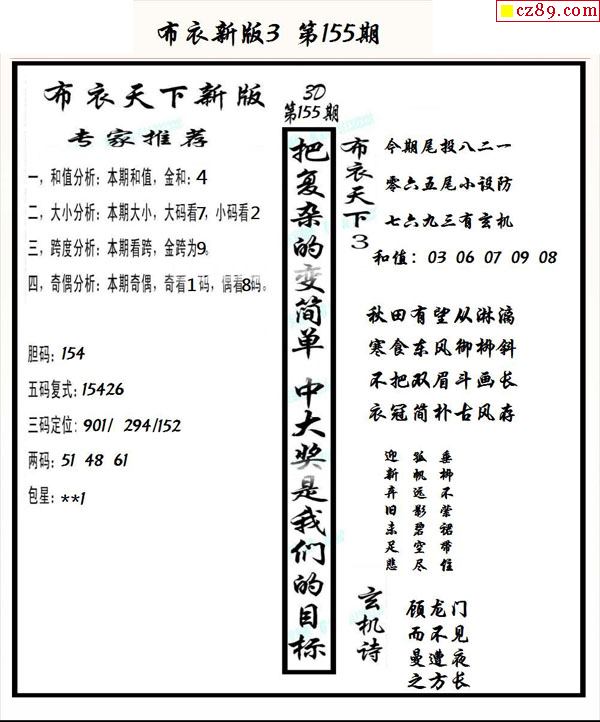 cz89.com
布衣新版3 第155期
布衣天下新版
专家推荐
一，和值分析：本期和值，金和：4
二，大小分析：本期大小，大码看7，小码看2
三，跨度分析：本期看跨，金跨为9。
四，奇偶分析：本期奇偶，奇看1码，偶看8码。
胆码：154
五码复式：15426
三码定位：901/ 294/152
两码：51 48 61
包星：**1
3D
第155期
把复杂的变简单 中大奖是我们的目标
布衣天下3
今期尾投八二一
零六五尾小设防
七六九三有玄机
和值：03 06 07 09 08
秋田有望从淋漓
寒食东风御柳斜
不把双眉斗画长
衣冠简朴古风存
迎新弃旧未足悲
孤帆远影碧空尽
垂柳不萦裙带住
玄机诗
顾龙门
而不见
曼遭夜
之方长